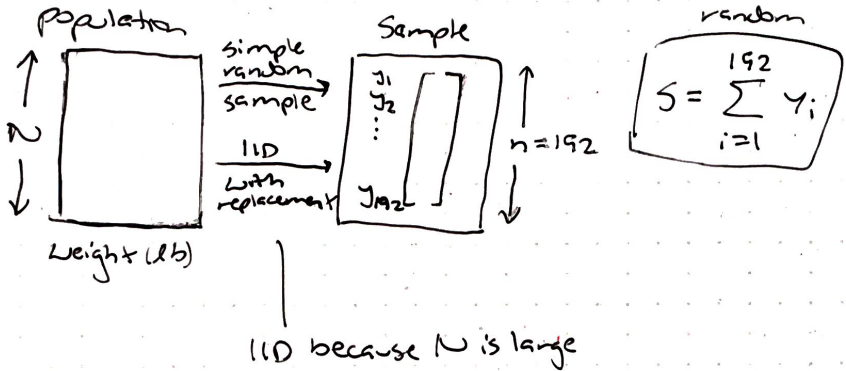 population
N
weight (lb)
simple
random
sample
IID
with
replacement
Sample
y1
y2
⋮
y192
n = 192
random
S = 192 ∑ i=1 yi
IID because N is large